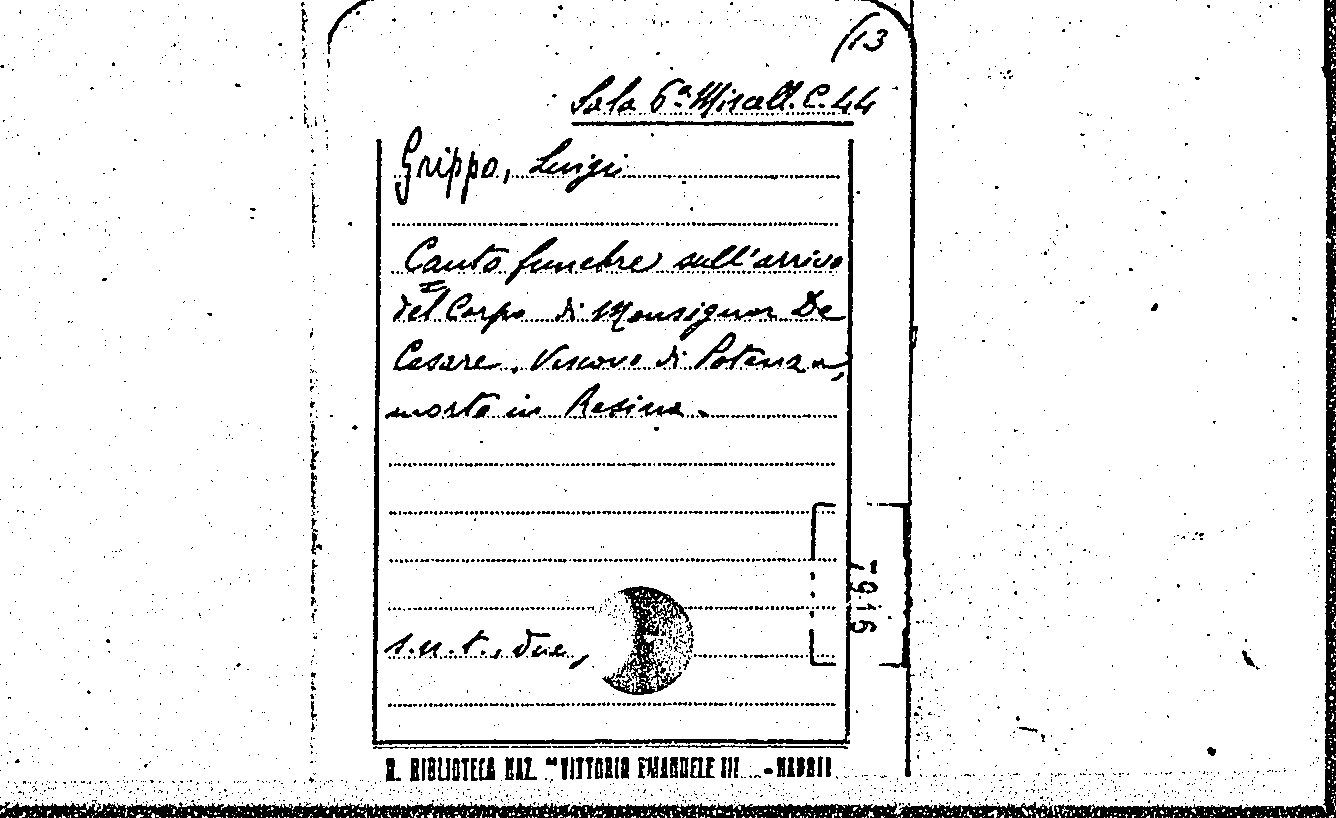 (13
Sala 6ª Miscell. C. 44
Grippo, Luigi
Canto funebre sull'arrivo
del Corpo di Monsignor De
Cesare, Vescovo di Potenza,
morto in Resina.
s.n.t., due,
7916
R. BIBLIOTECA NAZ. "VITTORIO EMANUELE III - NAPOLI